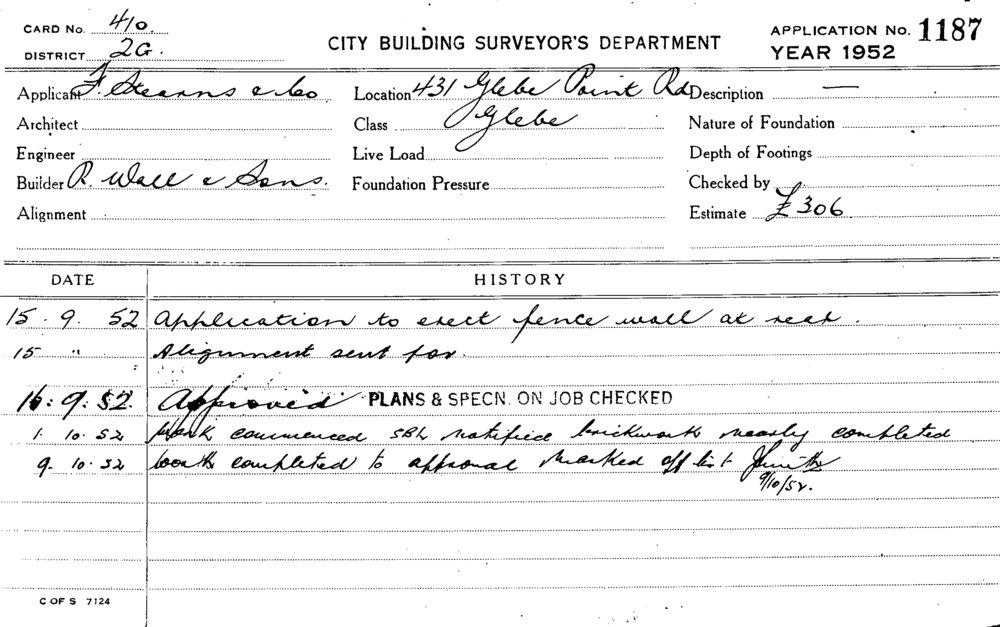 CARD No. 410.
DISTRICT 2G.
CITY BUILDING SURVEYOR'S DEPARTMENT
APPLICATION No. 1187
YEAR 1952
Applicant F. Stearns & Co
Location 431 Glebe Point Rd
Description —
Architect
Class Glebe
Nature of Foundation
Engineer
Live Load
Depth of Footings
Builder R. Wall & Sons.
Foundation Pressure
Checked by
Alignment
Estimate £306
DATE HISTORY
15. 9. 52 Application to erect fence wall at rear.
15 " Alignment sent for.
16. 9. 52. Approved PLANS & SPECN. ON JOB CHECKED
1. 10. 52 Work commenced notified brickwork nearly completed
9. 10. 52 Work completed to approval Marked off list
9/10/52.
C OF S 7124